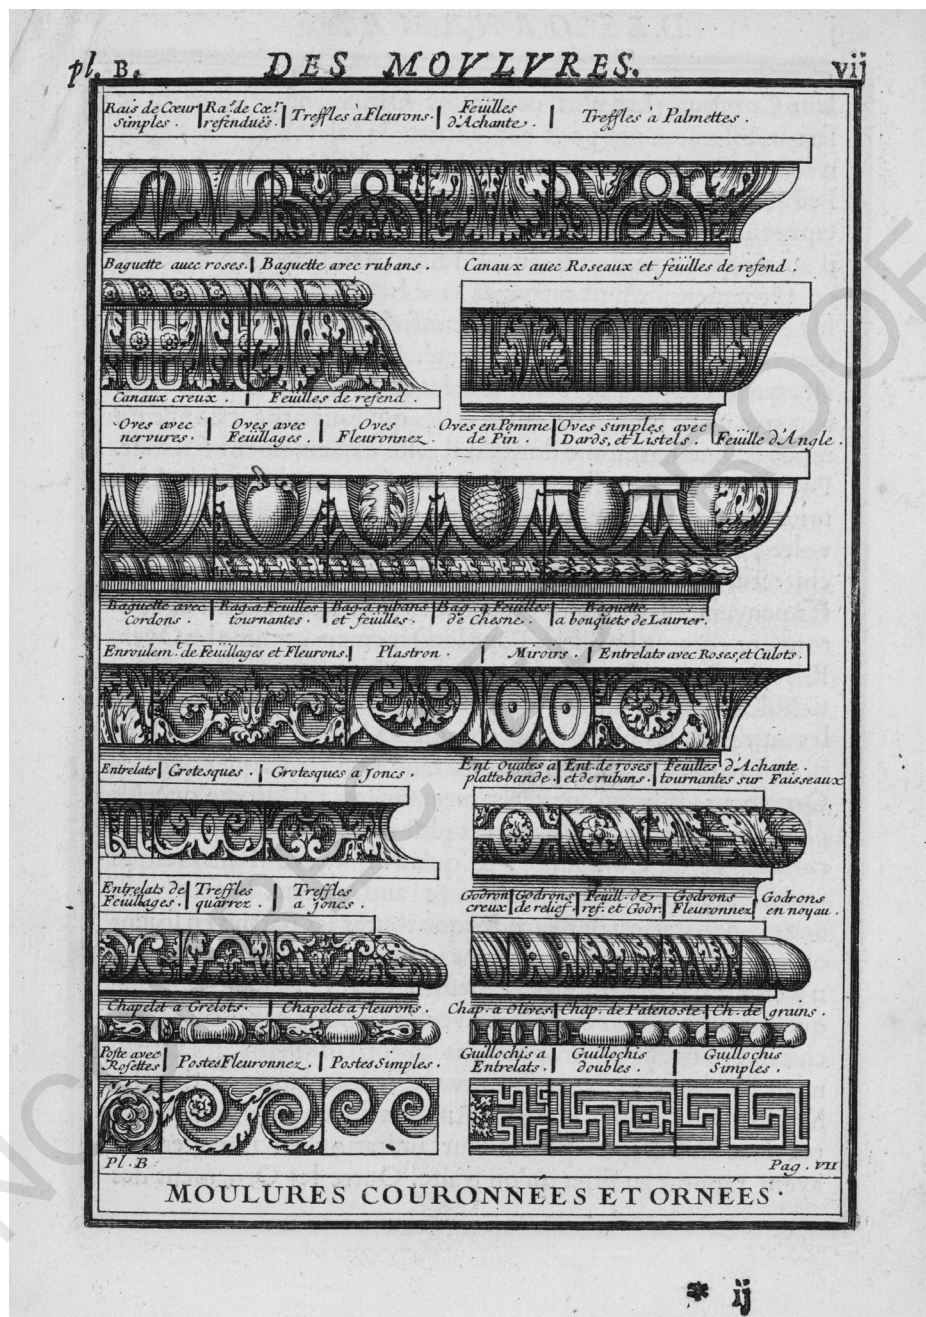 pl. B. DES MOVLVRES. vij
Rais de Cœur simples. Ra.s de Cœ.r refendués. Treffles à Fleurons. Feüilles d'Achante. Treffles a Palmettes.
Baguette auec roses. Baguette avec rubans. Canaux auec Roseaux et feüilles de refend.
Canaux creux. Feüilles de refend.
Oves avec nervures. Oves avec Feüillages. Oves Fleuronnez. Oves en Pomme de Pin. Oves simples avec Dards, et Listels. Feüille d'Angle.
Baguette avec Cordons. Bag. a Feüilles tournantes. Bag. a rubans et feüilles. Bag. a Feüilles de Chesne. Baguette a bouquets de Laurier.
Enroulem.t de Feüillages et Fleurons. Plastron. Miroirs. Entrelats avec Roses, et Culots.
Entrelats Grotesques. Grotesques a Joncs. Ent. Ouales a plattebande. Ent. de roses et de rubans. Feüilles d'Achante tournantes sur Faisseaux
Entrelats de Feüillages. Treffles quarrez. Treffles a Joncs. Godron creux Godrons de relief. Feüill. de ref. et Godr. Godrons Fleuronnez Godrons en noyau.
Chapelet a Grelots. Chapelet a fleurons. Chap. a Olives Chap. de Patenoste. Ch. de grains.
Poste avec Rosettes Postes Fleuronnez. Postes Simples. Guillochis a Entrelats. Guillochis doubles. Guillochis Simples.
Pl. B Pag. VII
MOULURES COURONNÉES ET ORNÉES.
* ij
UNCORRECTED PROOF